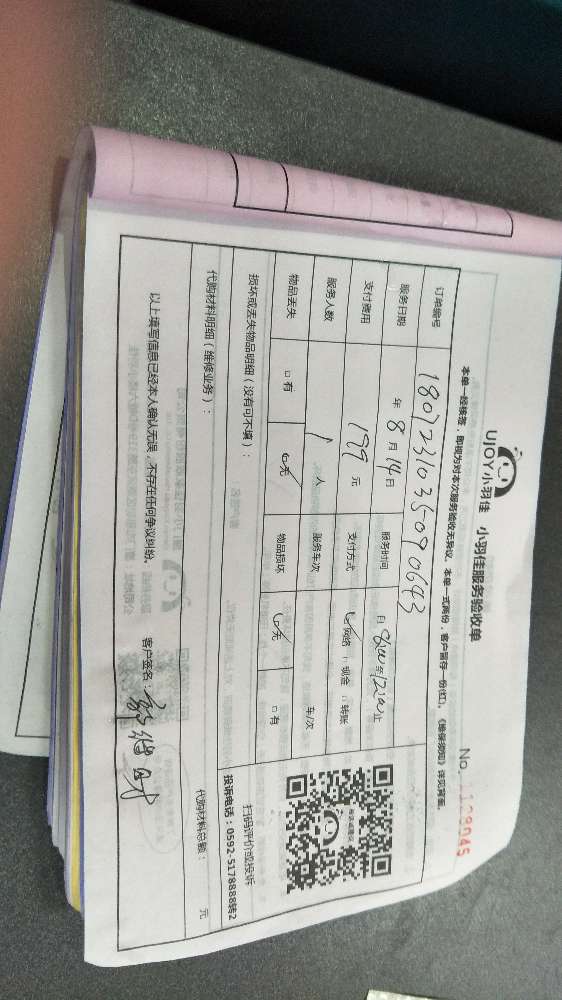 UJOY小羽佳 小羽佳服务验收单
No. 1128045
本单一经核签，即视为对本次服务验收无异议。本单一式两份，客户留存一份(红)。《维保须知》详见背面。
订单编号 180723103509 0643
服务日期 年 8 月 14 日 服务时间 自 8:00 至 12:00 止
支付费用 199 元 支付方式 网络 现金 转账
服务人数 1 人 服务车次 车/次
物品丢失 有 无 物品损坏 无 有
扫码评价或投诉
投诉电话：0592-5178888转2
损坏或丢失物品明细（没有可不填）：
代购材料明细（维修业务）： 代购材料总额： 元
以上填写信息已经本人确认无误，不存在任何争议纠纷。 客户签名：